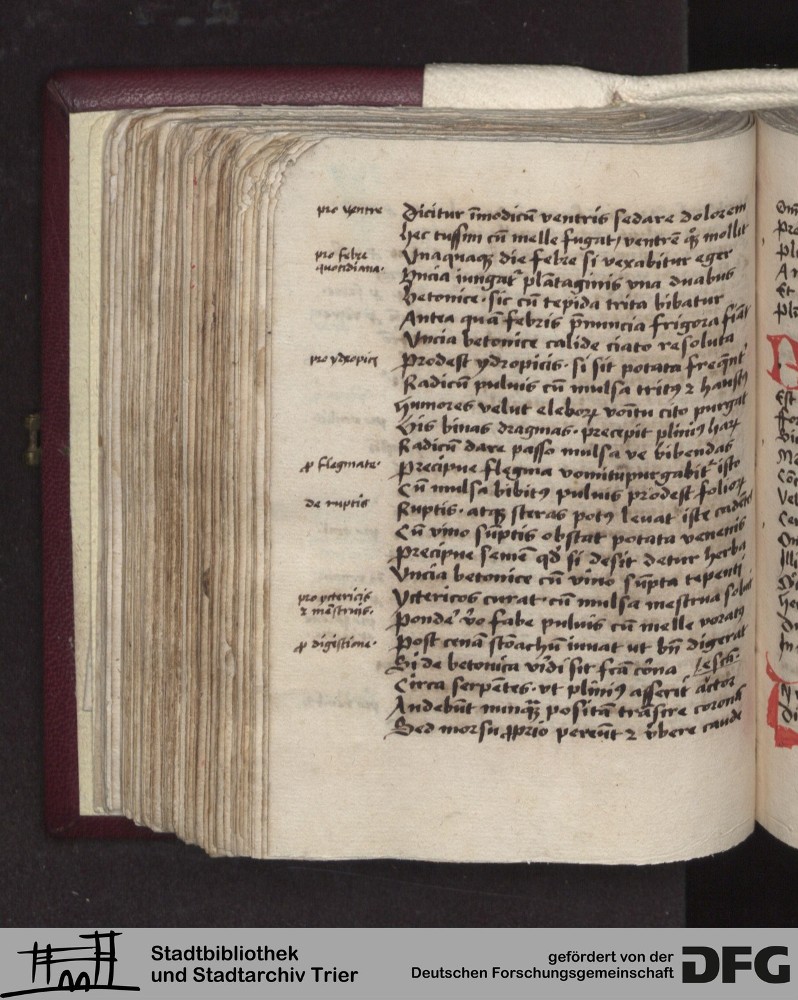 pro ventre
Dicitur īmodicū ventris sedare dolorem
hec tussim cū melle fugat ventrē qꝫ mollit
pro febre quotidiana·
Vnaquaqꝫ die febre si vexabitur eger
Vncia iungat᷑ plātaginis vna duabus
betonice· sic cū tepida trita bibatur
Antea quā febris p̄nuncia frigora fiāt
Vncia betonice calide ciato resoluta
pro ydropicꝭ
Prodest ydropicis· si sit potata freq̄nt᷑
Radicū puluis cū mulsa tritꝰ ⁊ haustꝰ
humores velut eleborꝝ vōitu cito purgat
His binas dragmas· precepit pliniꝰ harꝝ
Radicū dare passo mulsa ve bibendas
ꝓ flegmate·
Precipue flegma vomitupurgabit᷑ isto
Cū mulsa bibitꝰ puluis prodest folioꝝ
de ruptis
Ruptis· atqꝫ steras potꝰ leuat iste
Cū vino sūptis obstat potata venenis
Precipue semē qd̄ si desit detur herba
Vncia betonice cū vino sūpta tepenti
pro yctericis ⁊ mēstruis·
Yctericos curat· cū mulsa mestrua soluit
Ponde᷑ v̄o fabe puluis cū melle voratꝰ
ꝓ digestione·
Post cenā stōachū iuuat ut bn̄ digerat
Si de betonica viridi sit fcā corōna
Circa serpētes· vt pliniꝰ asserit actor
Audebūt nunqꝫ positā trāsire coronā
Sed morsu ꝓprio pereūt ⁊ v̄bere caude
Stadtbibliothek
und Stadtarchiv Trier
gefördert von der
Deutschen Forschungsgemeinschaft
DFG